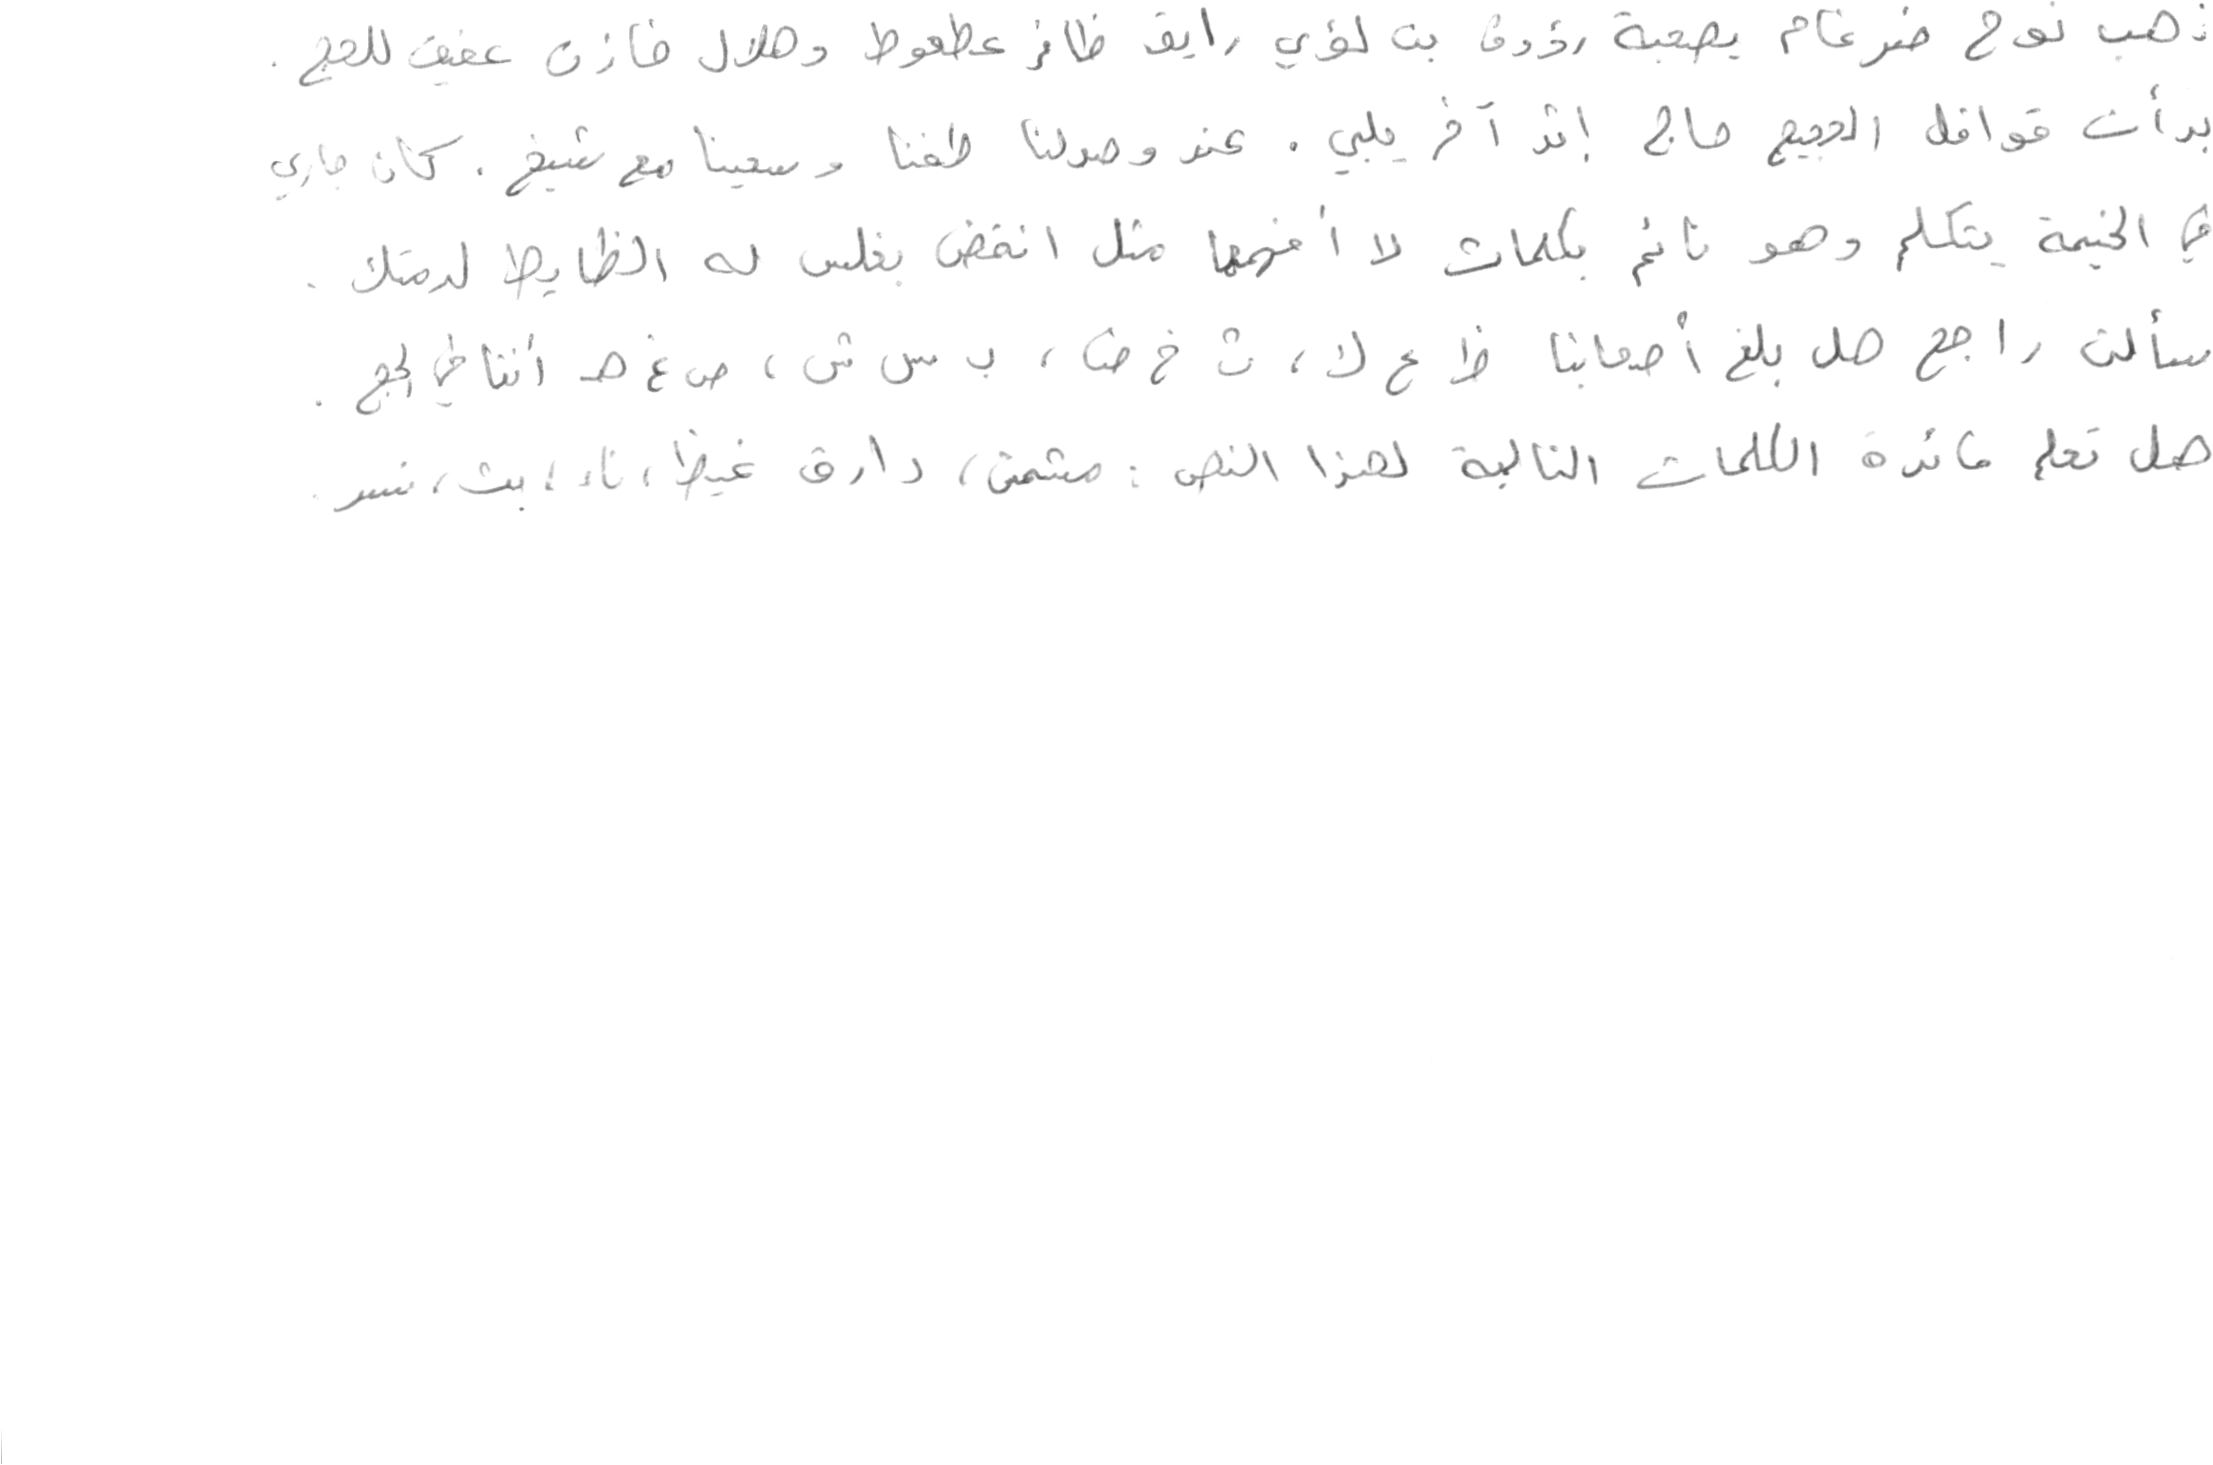 ذهب نوح ضرغام بصحبة رؤوف بن لؤي رايق ظافر عطعوط وهلال خازن عفيف للحج .
بدأت قوافل الحجيج حاج إثر آخر يلبي . عند وصولنا طفنا وسعينا مع شيخ . كان جاري
في الخيمة يتكلم وهو نائم بكلمات لا أفهمها مثل انقض بغلس له الظايط لدمتك .
سألت راجح هل بلغ أصحابنا ظ ع ك ، ث خ ض ، ب س ش ، ص غ هـ أننا في الحج .
هل تعلم فائدة الكلمات التالية لهذا النص : مشمش ، دارق غيظ ، ناء ، بث ، نسر .